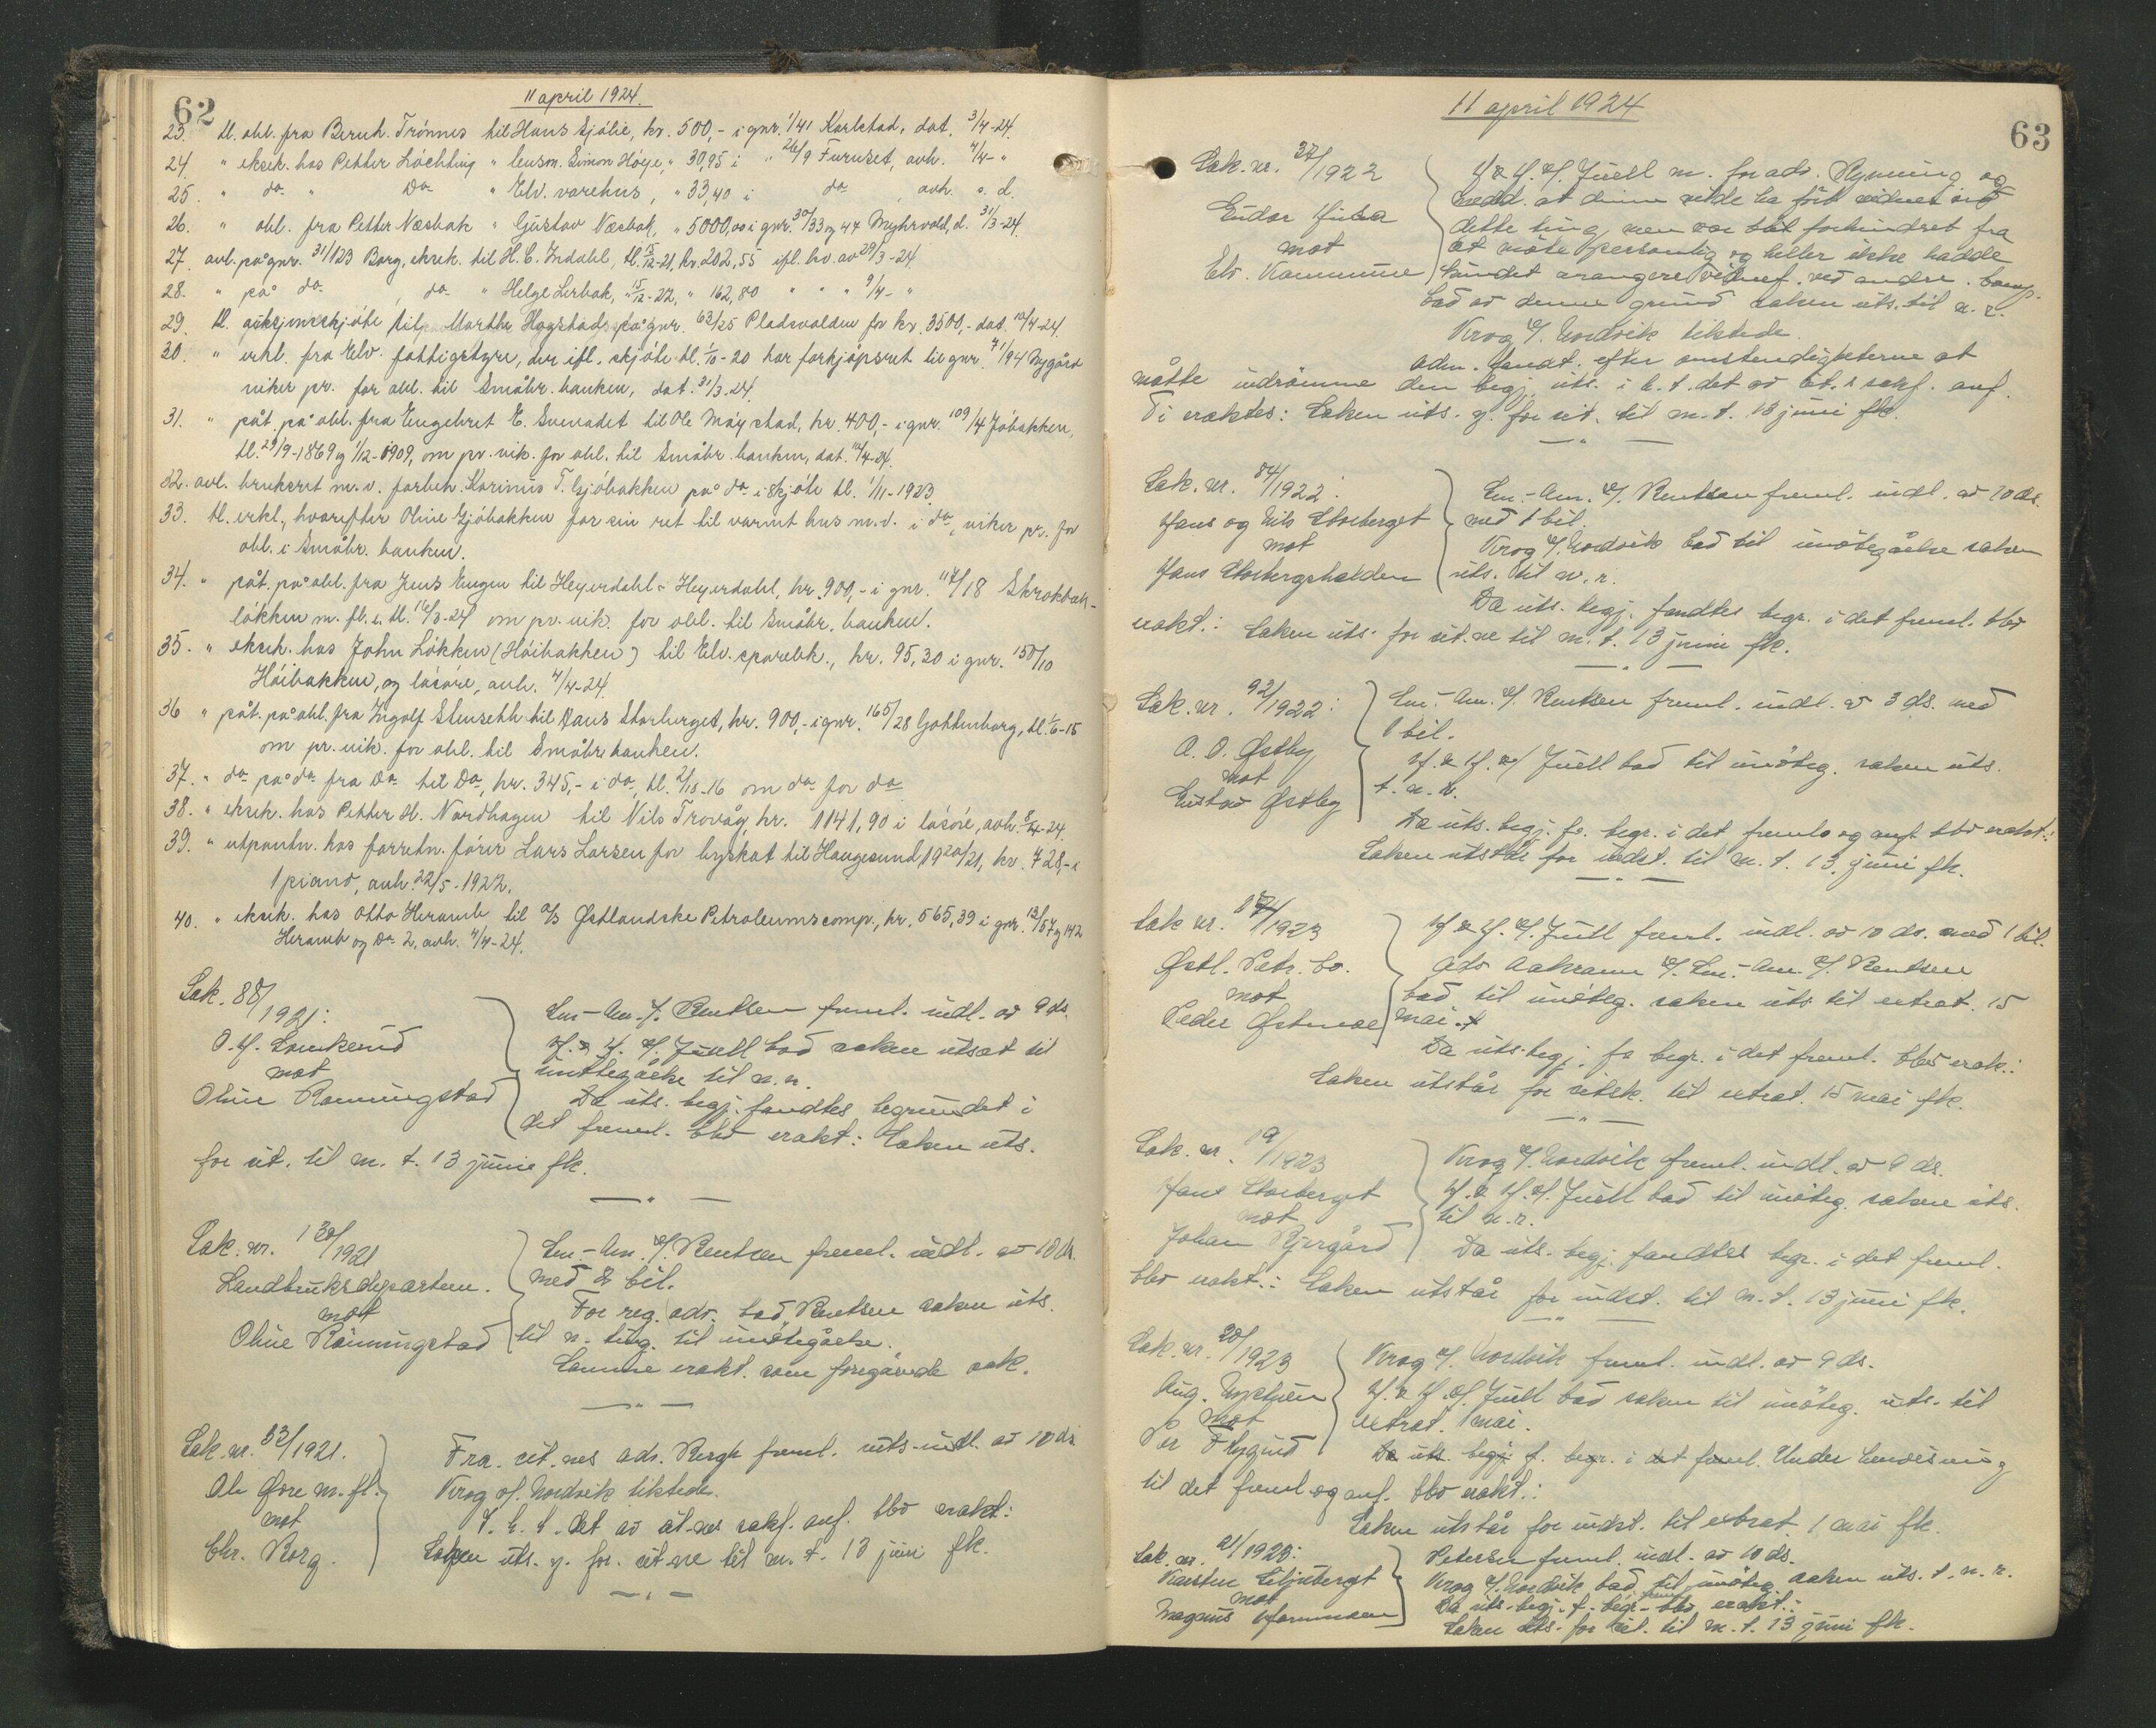 62
11 april 1924.
23. tl. obl. fra Bernh. Trönnes til Hans Sjölie, kr. 500,- i gnr. 1/41 Karlstad, dat. 3/4-24.
24. " eksek. hos Petter Löchting " lensm. Simon Höye, " 30,95 i " 26/9 Furuset, avh. 4/4- "
25. " do " Do " Elv. varehus, " 33,40 i do, avh. s. d.
26. " obl. fra Petter Næsbak " Gustav Næsbak, " 5000,00 i gnr. 30/33 og 44 Myhrvold, d. 31/3-24.
27. avl. på gnr. 31/123 Borg, eksek. til H. C. Indahl, tl. 15/12-21, kr. 202,55 ifl. kv. av 29/3-24.
28. " på do , do " Helge Lerbak, " 15/12-22, " 162,80 " " " 9/4- "
29. tl. auksjonsskjöte til Marthe Hagstad på gnr. 63/25 Pladsvolden for kr. 3500,- dat. 10/4-24.
30. " erkl. fra Elv. fattigstyre, der ifl. skjöte tl. 1/10-20 har forkjöpsret til gnr. 71/94 Nygård
viker pr. for obl. til Småbr. banken, dat. 31/3-24.
31. " påt. på obl. fra Engebret E. Svenadet til Ole Möystad, kr. 400,- i gnr. 109/4 Jöbakken,
tl. 29/9-1869 og 1/12-1909, om pr. vik. for obl. til Småbr. banken, dat. 10/4-24.
32. avl. bruksret m. v. forbeh. Karinus T. Gjöbakken på do i skjöte tl. 1/11-1923
33. tl. erkl., hvorefter Oline Gjöbakken for sin ret til varmt hus m. v. i do, viker pr. for
obl. i Småbr. banken.
34. " påt. på obl. fra Jens Engen til Heyerdahl & Heyerdahl, kr. 900,- i gnr. 117/18 Skrokbæk-
lökken m. fl. e. tl. 16/3-24 om pr. vik. for obl. til Småbr. banken.
35. " eksek. hos John Lökken (Höibakken) til Elv. sparebk., kr. 95,30 i gnr. 150/10
Höibakken, og lösöre, avh. 4/4-24.
36 " påt. på obl. fra Ingolf Stenseth til Hans Storberget, kr. 900,- i gnr. 165/28 Gottenborg, tl. 1/6-15
om pr. vik. for obl. til Småbr. banken.
37. " do på do fra Do til Do, kr. 345,- i do, tl. 2/10-16 om do for do
38. " eksek. hos Petter H. Nordhagen til Nils Trovåg, kr. 1141,90 i lösöre, avh. 8/4-24
39. " utpantn. hos forretn. förer Lars Larsen for byskat til Haugesund 1920/21, kr. 728,- i
1 piano, avh. 22/5-1922.
40. " eksek. hos Otto Heramb til A/S Östlandske Petroleumscomp., kr. 565,39 i gnr. 13/57 og 142
Heramb og Do 2, avh. 4/4-24.
Sak. 88/1921:
mot
Oline Ramningstad
Em-Am. f. Bentsen freml. indl. av 9 ds.
H. & H. v/ Juell bad saken utsat til
imötegåelse til n. r.
Da uts. begj. fandtes begrundet i
det freml. blev erakt: Saken uts.
for cit. til m. t. 13 junie fk.
Sak. nr. 130/1921
Landbruksdepartem.
mot
Oline Rönningstad
Em-Am. v/ Bentsen freml. indl. av 10 ds.
med 2 bil.
For reg. adv. bad Bentsen saken uts.
til n. ting. til imötegåelse.
Samme erakt. som foregående sak.
Sak. nr. 53/1921.
Ole Övre m. fl.
mot
Chr. Borg.
Fra cit.nes adv. Bergh freml. uts.-indl. av 10 ds
Krog v/ Nordvik tilstede.
I. h. t. det av cit.nes sakf. anf. blev erakt:
Saken uts. y. for. cit.ne til m. t. 13 juni fk.
11 april 1924
63
Sak. nr. 37/1922
mot
Elv. Kommune
H & H. v/ Juell m. for adv. Rynning og
medd. at denne vilde ha fört vidner ved
dette ting, men var blit forhindret fra
at möte personlig og heller ikke hadde
kundet arangere vidnef. ved andre. Comp.
bad av denne grund saken uts. til n. r.
Krog v/ Nordvik tilstede.
adm. fandt efter omstendigheterne at
måtte indrömme den begj. uts. i h. t. det av cit.s sakf. anf.
Ti eraktes: Saken uts. y. for cit. til m. t. 13 juni fk.
Sak. nr. 84/1922:
Hans og Nils Storberget
mot
Hans Storbergshalden
Em.-Am. v/ Bentsen freml. indl. av 10 ds.
med 1 bil.
Krog v/ Nordvik bad til imötegåelse saken
uts. til n. r.
Da uts. begj. fandtes begr. i det freml. blev
erakt.: Saken uts. for cit.ne til m. t. 13 juni fk.
Sak. nr. 92/1922:
A. O. Östby
mot
Gustav Östby
Em.-Am. v/ Bentsen freml. indl. av 3 ds. med
1 bil.
H. & H. v/ Juell bad til imöteg. saken uts.
t. n. r.
Da uts. begj. fs. begr. i det freml. og anf. blev erakt.:
Saken utstår for indst. til m. t. 13 juni fk.
Sak nr. /1923
Östl. Petr. Co.
mot
Peder Östmoe
H & H. v/ Juell freml. indl. av 10 ds. med 1 bil.
Adv Aakrann v/ Em.-Am. v/ Bentsen
bad til imöteg. saken uts til extrat. 15
mai.
Da uts. begj. fs begr. i det freml. blev erak.:
Saken utstår for citsk. til extrat. 15 mai fk.
Sak. nr. 19/1923
Hans Storberget
mot
Johan Bjergård
Krog v/ Nordvik freml. indl. av 9 ds.
H. & H. v/ Juell bad til imöteg. saken uts.
til n. r.
Da uts. begj. fandtes begr. i det freml.
blev erakt.: Saken utstår for indst. til m. t. 13 juni fk.
Sak. nr. 20/1923
Aug.
mot
Per Flygind
Krog v/ Nordvik freml. indl. av 9 ds.
H. & H. v/ Juell bad saken til imöteg. uts. til
extrat. 1 mai.
Da uts. begj. f. begr. i det freml. Under henvisning
til det freml. og anf. blev erakt.:
Saken utstår for indst. til extrat. 1 mai fk.
Sak. nr. 21/1923:
Karsten Liljeberget
mot
Magnus
Petersen freml. indl. av 10 ds.
Krog v/ Nordvik bad til imöteg. saken uts. t. n. r.
Da uts. begj. f. begr. blev erakt.:
Saken uts. for cit. til m. t. 13 juni fk.